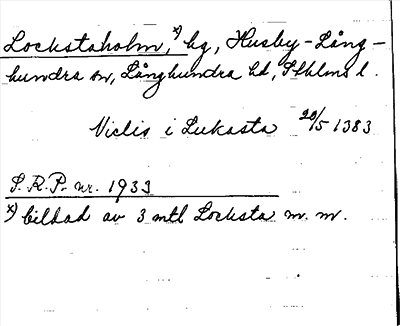 Lockstaholm,x) hg, Husby-Lång-
hundra sn, Långhundra hd, Sthlms l.
Viclis i Lukasta 20/5 1383
S.R.P. nr. 1933
x) bildad av 3 mtl Locksta m.m.